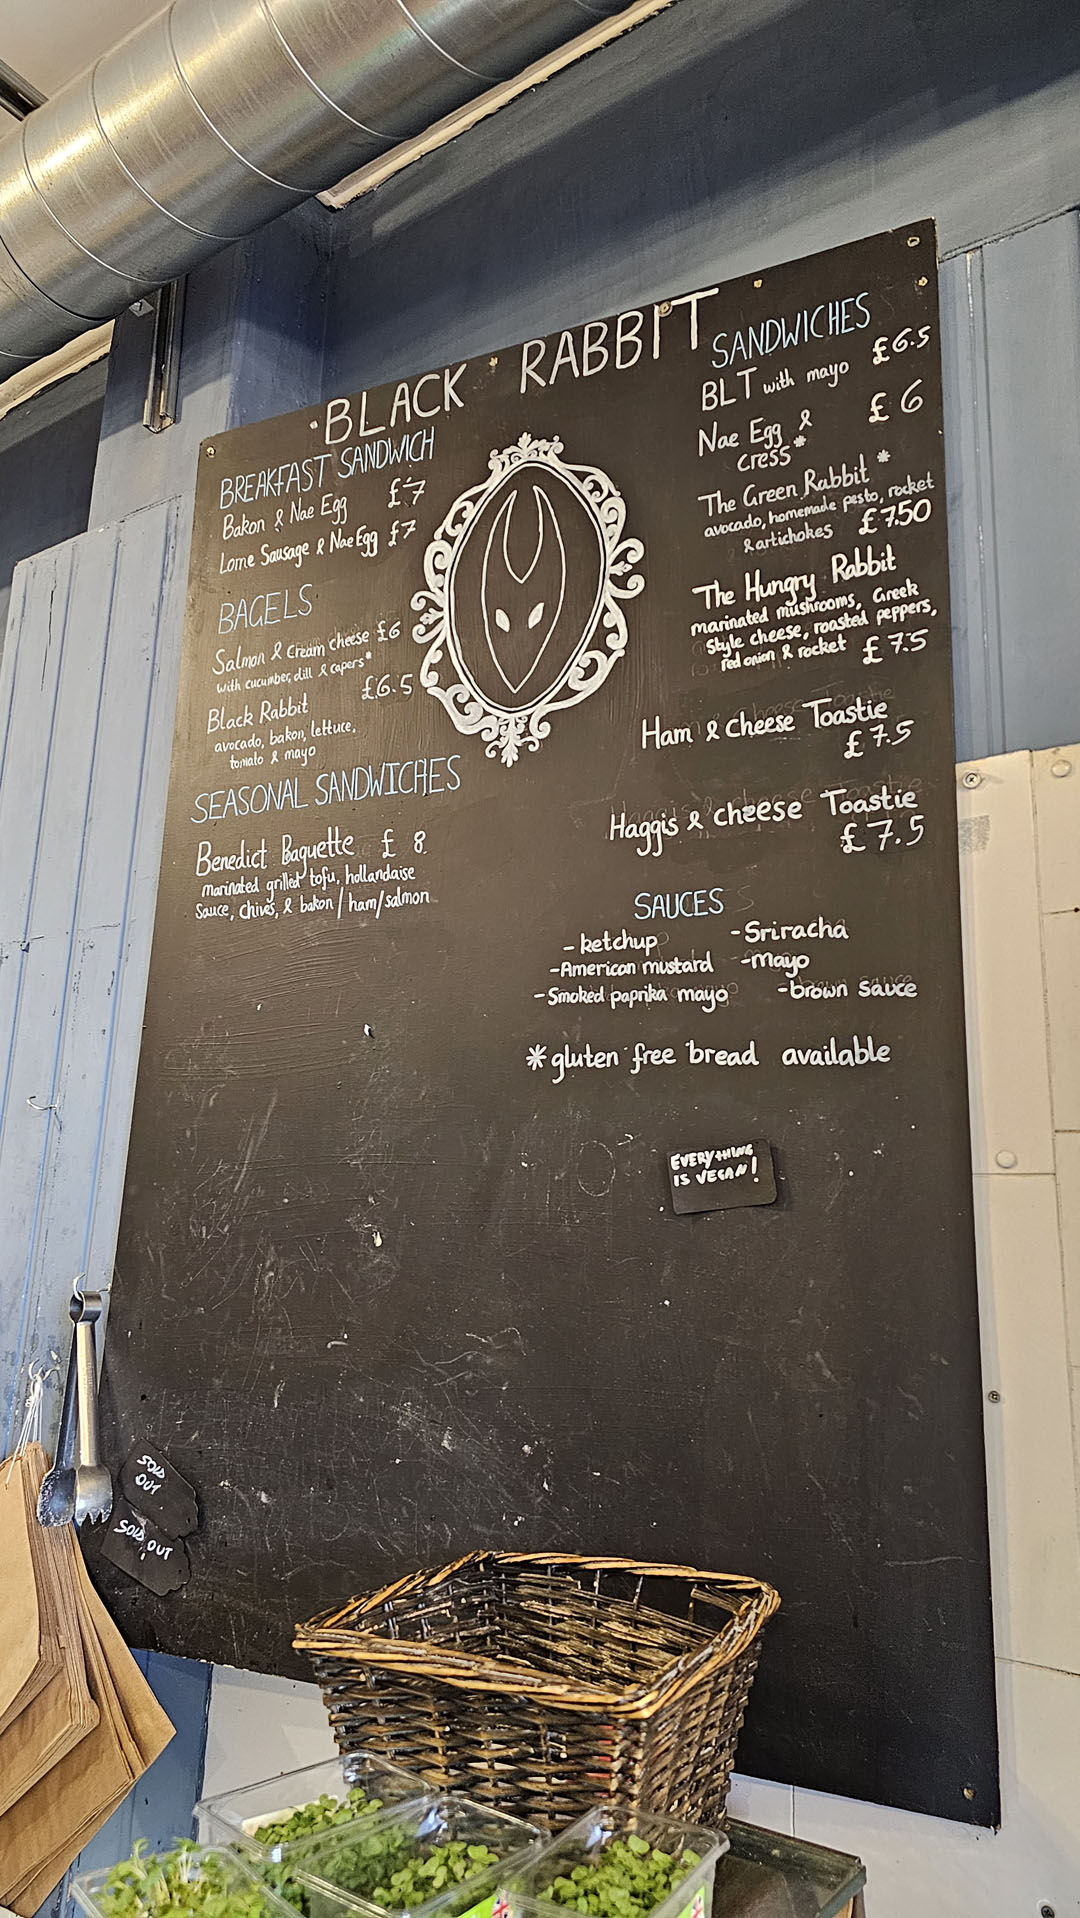 BLACK RABBIT
BREAKFAST SANDWICH
Bakon & Nae Egg £7
Lorne Sausage & Nae Egg £7
BAGELS
Salmon & Cream cheese £6
with cucumber, dill & capers*
Black Rabbit £6.5
avocado, bakon, lettuce,
tomato & mayo
SEASONAL SANDWICHES
Benedict Baguette £8
marinated grilled tofu, hollandaise
Sauce, chives, & bakon/ham/salmon
SANDWICHES
BLT with mayo £6.5
Nae Egg & £6
cress*
The Green Rabbit *
avocado, homemade pesto, rocket
& artichokes £7.50
The Hungry Rabbit
marinated mushrooms, Greek
Style cheese, roasted peppers,
red onion & rocket £7.5
Ham & Cheese Toastie
£7.5
Haggis & cheese Toastie
£7.5
SAUCES
- ketchup - Sriracha
- American mustard - mayo
- Smoked paprika mayo - brown sauce
* gluten free bread available
EVERYTHING
IS VEGAN!
SOLD
OUT
SOLD OUT
!